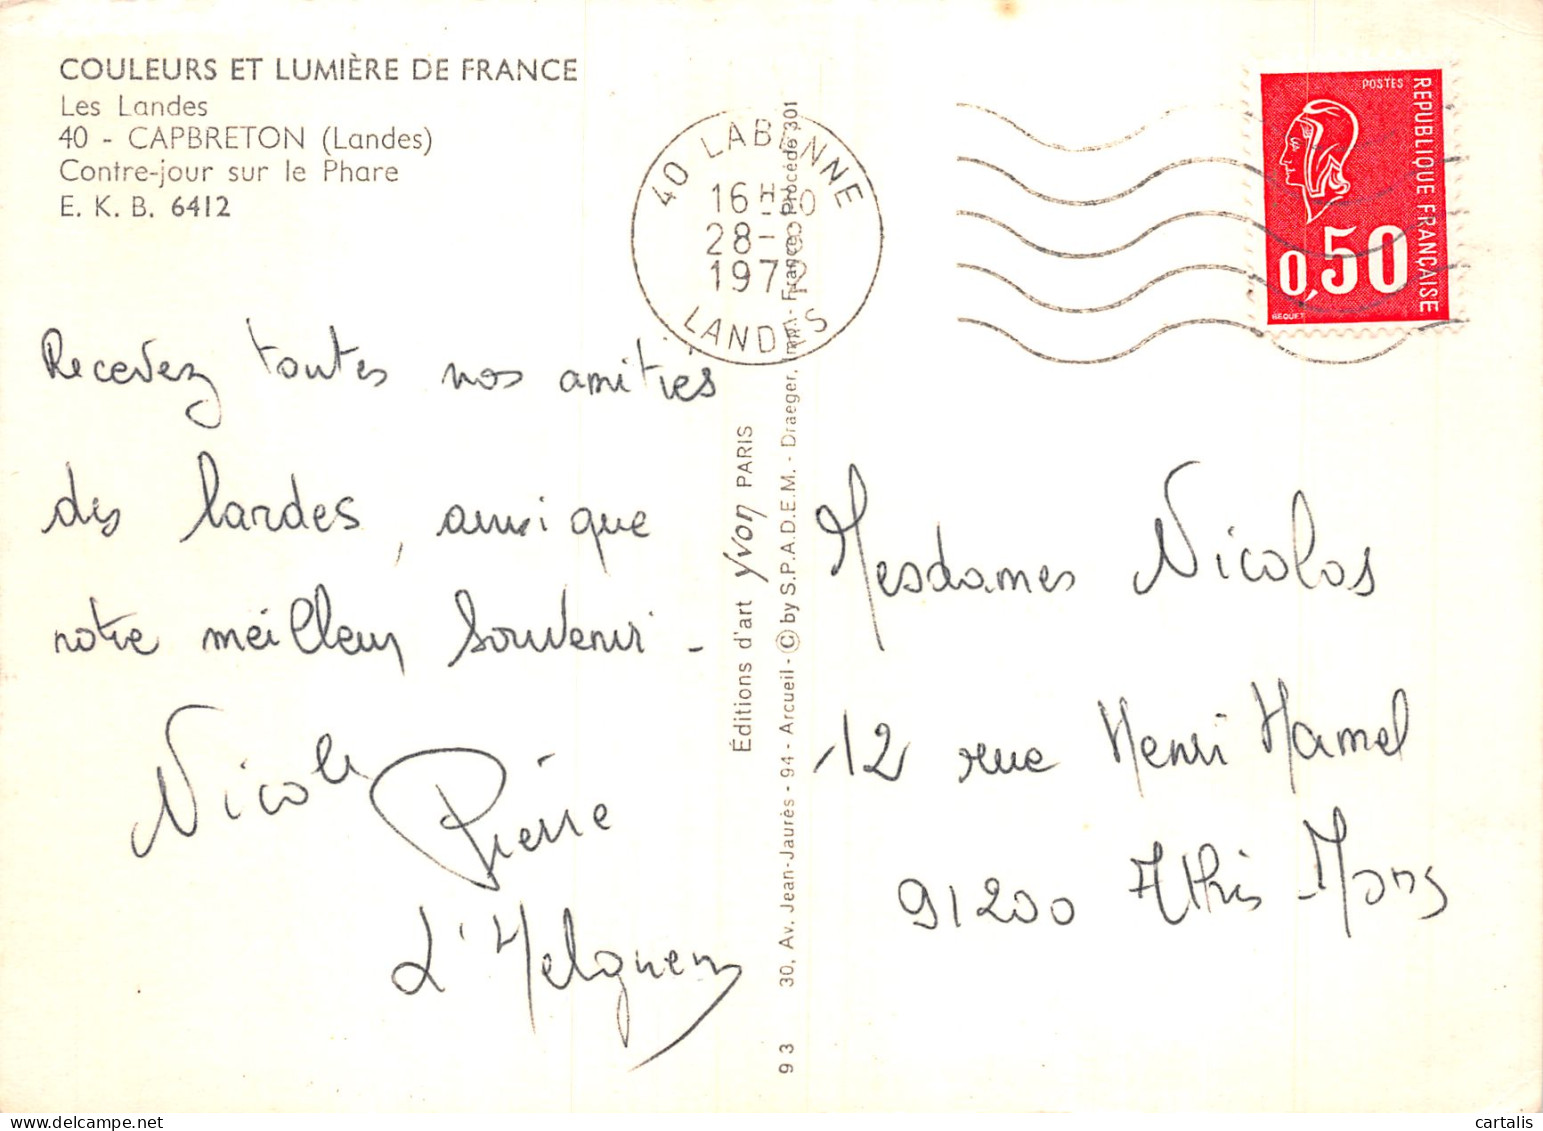 COULEURS ET LUMIÈRE DE FRANCE
Les Landes
40 - CAPBRETON (Landes)
Contre-jour sur le Phare
E. K. B. 6412
Recevez toutes nos amitiés
des landes, ainsi que
notre meilleur souvenir -
Nicole
Pierre
40 LABENNE
16H
28-
1972
LANDES
Éditions d'art yvon PARIS
93 30, Av. Jean-Jaurès - 94 - Arcueil - © by S.P.A.D.E.M. - Draeger, imp. - France - Procédé 301
POSTES
REPUBLIQUE FRANÇAISE
0,50
BEQUET
Mesdames Nicolas
12 rue Henri Hamel
91200 Athis-Mons
cartalis